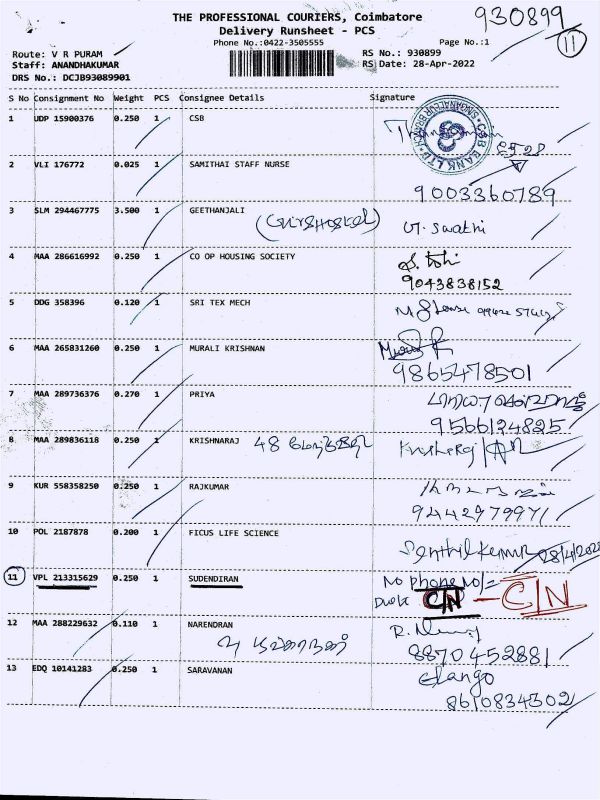 THE PROFESSIONAL COURIERS, Coimbatore
930899
Delivery Runsheet - PCS
Phone No.:0422-3505555
Page No.:1
11
Route: V R PURAM
RS No.: 930899
Staff: ANANDHAKUMAR
RS Date: 28-Apr-2022
DRS No.: DCJB93089901
S No Consignment No Weight PCS Consignee Details Signature
1 UDP 15900376 0.250 1 CSB
CSB BANK LTD
2 VLI 176772 0.025 1 SAMITHAI STAFF NURSE
9003360789
3 SLM 294467775 3.500 1 GEETHANJALI
4 MAA 286616992 0.250 1 CO OP HOUSING SOCIETY
9043838152
5 DDG 358396 0.120 1 SRI TEX MECH
6 MAA 265831260 0.250 1 MURALI KRISHNAN
9865478501
7 MAA 289736376 0.270 1 PRIYA
9566124825
8 MAA 289836118 0.250 1 KRISHNARAJ 48
9 KUR 558358250 0.250 1 RAJKUMAR
9442979971
10 POL 2187878 0.200 1 FICUS LIFE SCIENCE
Senthil Kumar 28/4/2022
11 VPL 213315629 0.250 1 SUDENDIRAN No phone No/=
C/N - C/N
12 MAA 288229632 0.110 1 NARENDRAN
8870452881
13 EDQ 10141283 0.250 1 SARAVANAN Elango
8610834302